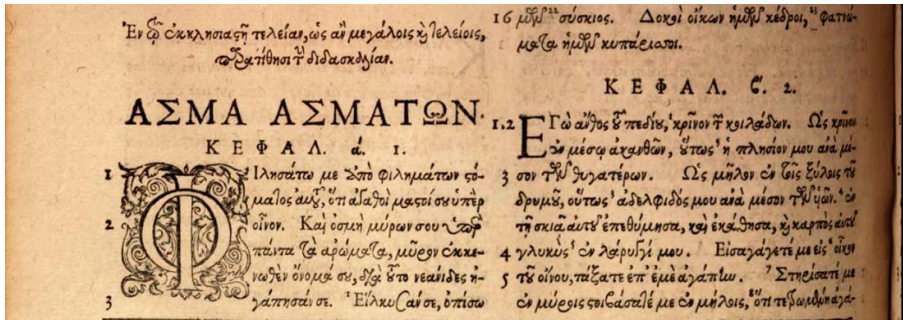 Ἐν ᾧ ἐκκλησίας τελείαν, ὡς ἂν μεγάλοις κὶ τελείοις,
παρατίθησι τὴν διδασκαλίαν.
ΑΣΜΑ ΑΣΜΑΤΩΝ.
ΚΕΦΑΛ. ά. 1.
1 ΦΙλησάτω με ἀπὸ φιλημάτων στό-
ματος αὐτοῦ, ὅτι ἀγαθοὶ μαστοί σου ὑπὲρ
2 οἶνον. Καὶ ὀσμὴ μύρων σου ὑπὲρ
πάντα τὰ ἀρώματα, μῦρον ἐκκε-
νωθὲν ὄνομά σου, διὰ τοῦτο νεάνιδες ἠ-
3 γάπησάν σε. Εἵλκυσάν σε, ὀπίσω
16 ἡμῶν σύσκιος. Δοκοὶ οἴκων ἡμῶν κέδροι, φατνώ-
ματα ἡμῶν κυπάρισσοι.
ΚΕΦΑΛ. ϛ. 2.
1.2 ΕΓὼ ἄνθος τοῦ πεδίου, κρίνον τῶν κοιλάδων. Ὡς κρίνον
ἐν μέσῳ ἀκανθῶν, οὕτως ἡ πλησίον μου ἀνὰ μέ-
3 σον τῶν θυγατέρων. Ὡς μῆλον ἐν τοῖς ξύλοις τοῦ
δρυμοῦ, οὕτως ἀδελφιδός μου ἀνὰ μέσον τῶν υἱῶν. ἐν
τῇ σκιᾷ αὐτοῦ ἐπεθύμησα, καὶ ἐκάθησα, κὶ καρπὸς αὐτοῦ
4 γλυκὺς ἐν λάρυγγί μου. Εἰσαγάγετέ με εἰς οἶκον
5 τοῦ οἴνου, τάξατε ἐπ' ἐμὲ ἀγάπην. Στηρίσατέ με
ἐν μύροις, στοιβάσατέ με ἐν μήλοις, ὅτι τετρωμένη ἀγά-